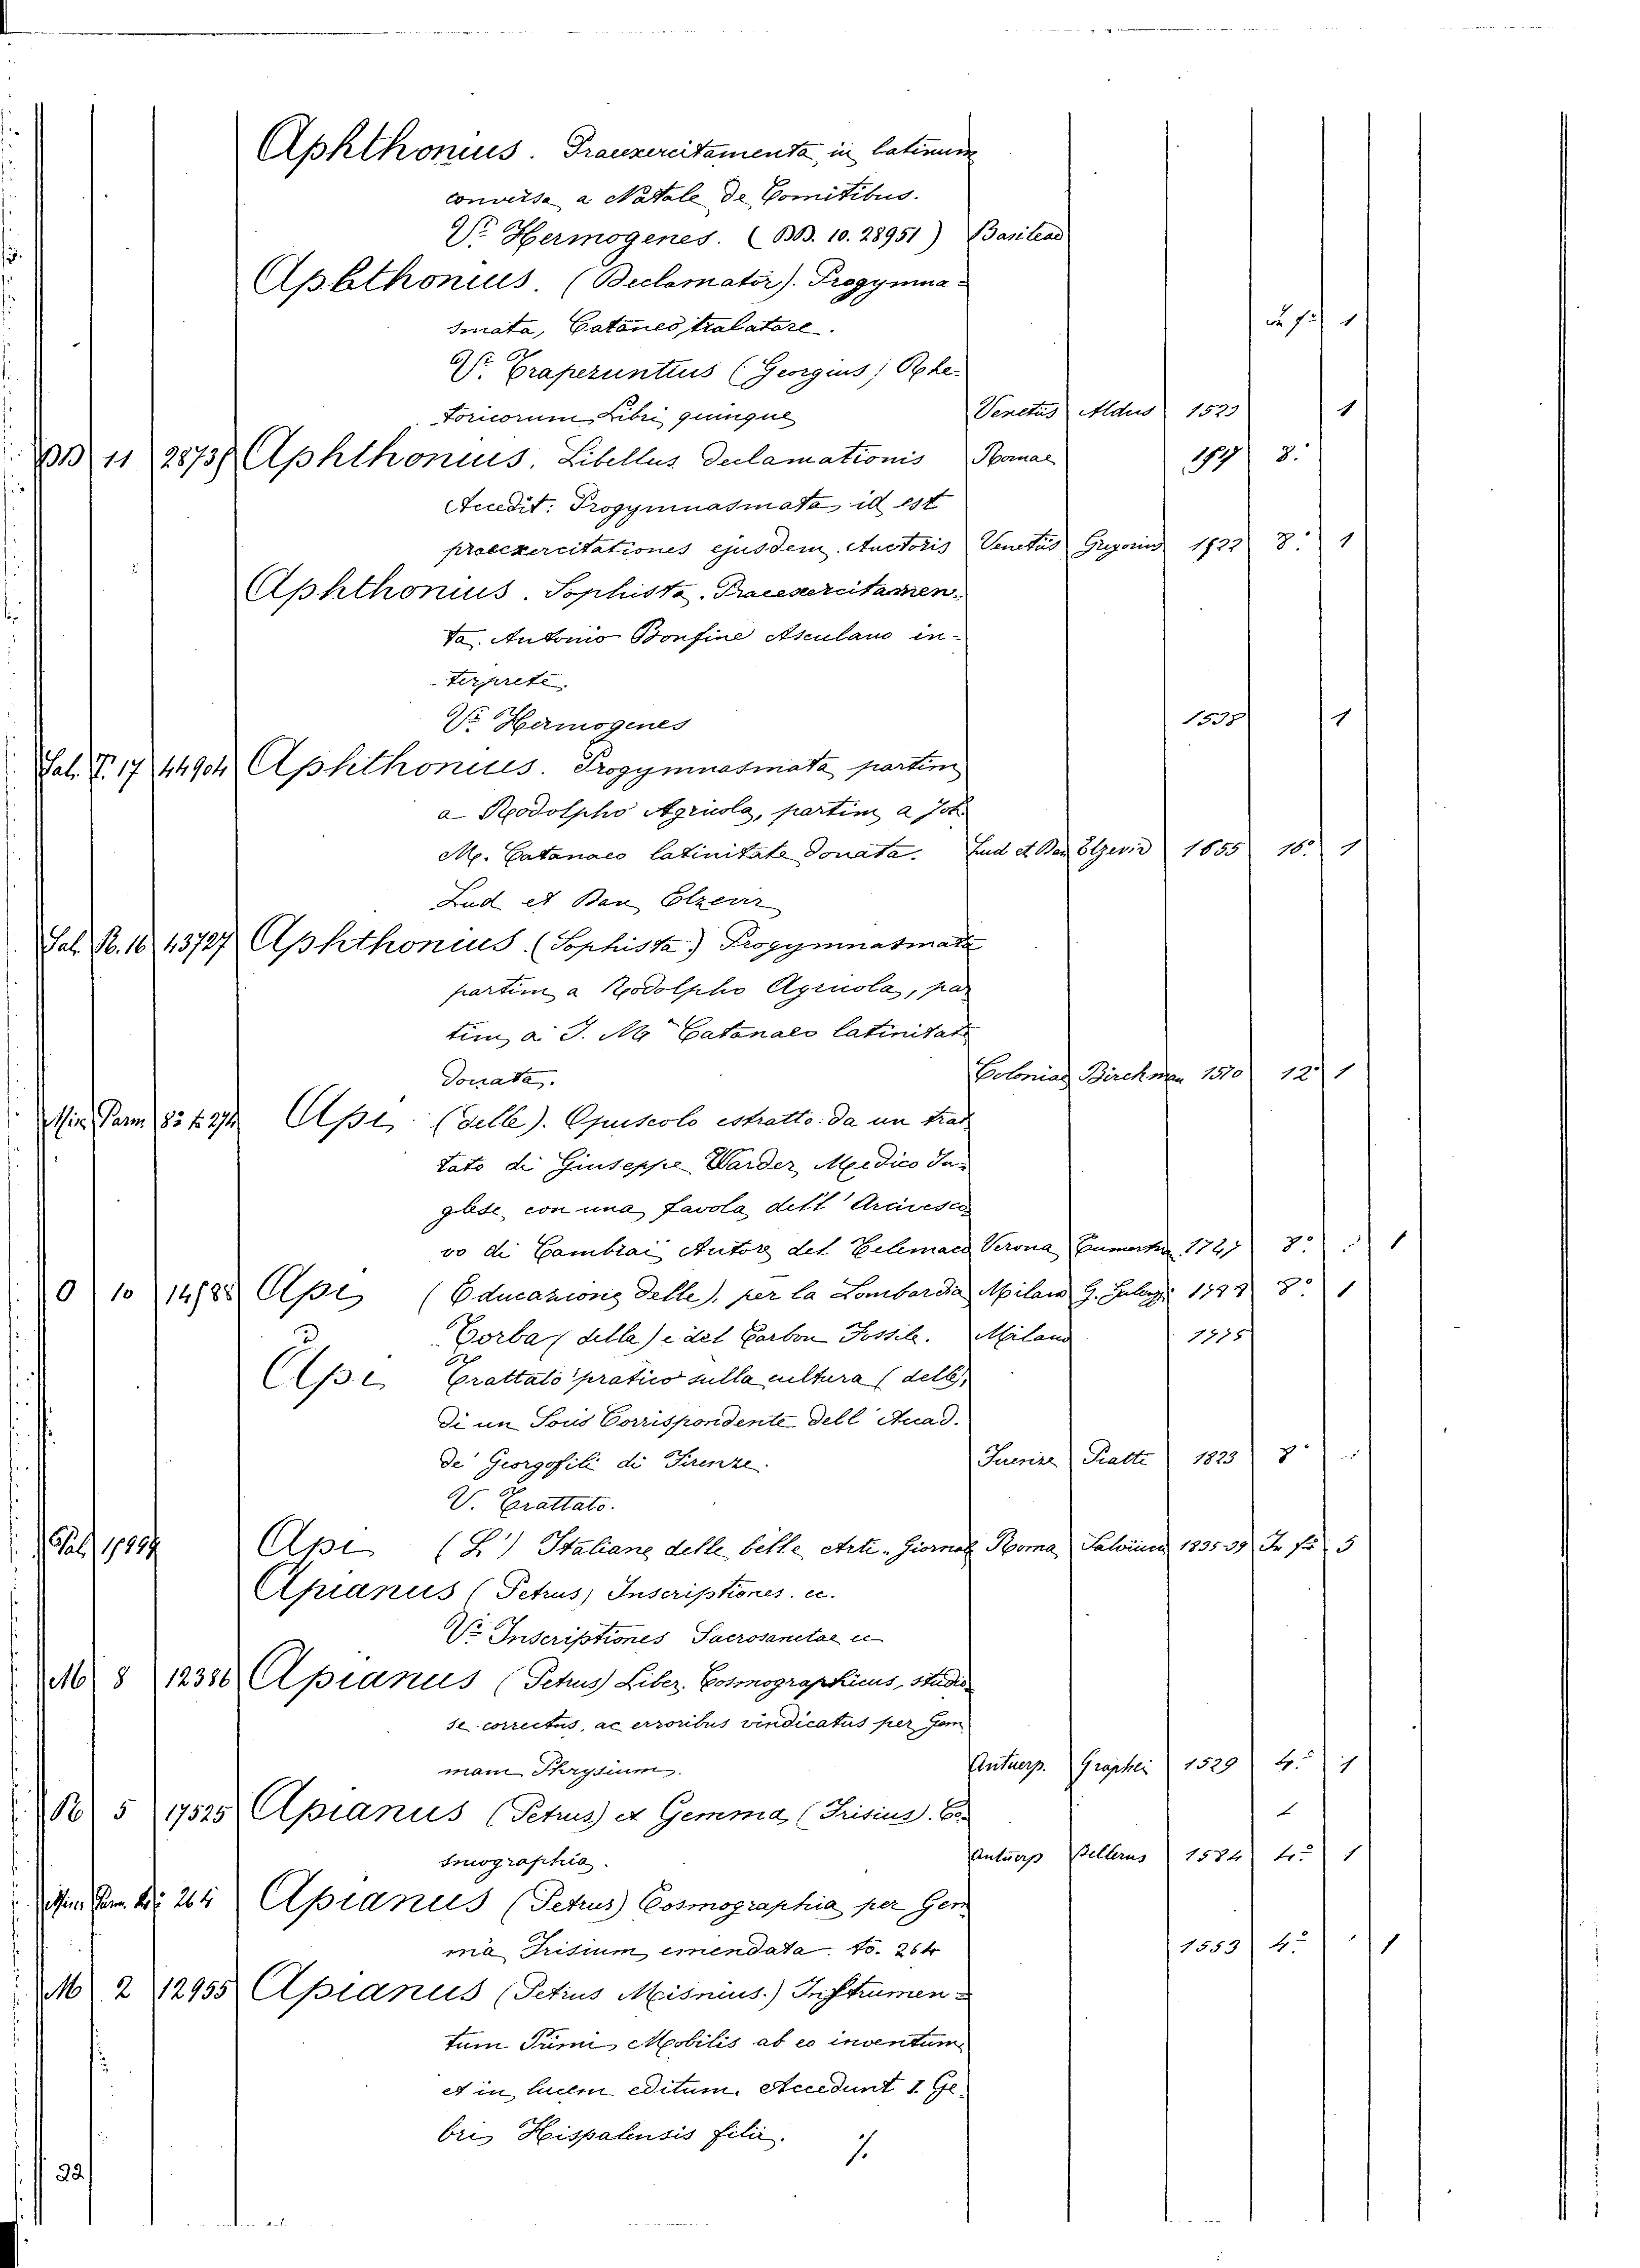 Aphthonius. Praexercitamenta, in latinum
conversa a Natale de Comitibus.
Vi Hermogenes. (BB. 10. 28951) Basileae
Aphthonius. (Declamator). Progymna-
smata, Cataneo tralatore. in fo 1
Vi Traperuntius (Georgius) Rhe-
toricorum Libri quinque Venetiis Aldus 1523 1
BB 11 28738 Aphthonius. Libellus declamationis Romae 1517 8.
Accedit: Progymnasmata, id est
praeexercitationes ejusdem Auctoris Venetiis Gregorius 1522 8. 1
Aphthonius. Sophista. Praeexercitamen-
ta. Antonio Bonfine Asculano in-
terprete.
Vi Hermogenes 1538 1
Pal. T. 17 44904 Aphthonius. Progymnasmata partim
a Rodolpho Agricola, partim a Joh
M. Catanaeo latinitate donata. Lud et Dan Elzevir 1655 16. 1
Lud et Dan Elzevir
Pal. R. 16 43727 Aphthonius (Sophista) Progymnasmata
partim a Rodolpho Agricola, par
tim, a J. Ma Catanaeo latinitate
donata. Coloniae Birckman 1570 12. 1
Min. Parm 82 t. 274 Api (delle). Opuscolo estratto da un trat
tato di Giuseppe Warder Medico In-
glese, con una favola dell' Arcivesco
vo di Cambrai Autore del Telemaco Verona 1727 8. 1
O 10 14188 Api (Educazione delle), per la Lombardia Milano G. 8. 1
Torba (della) e del Carbon Fossile. Milano 1775
Api Trattato pratico sulla cultura (delle),
di un Socio Corrispondente dell' Accad.
de' Georgofili di Firenze. Firenze Piatti 1823 8.
V. Trattato.
Pal. Api (L') Italiana delle belle Arti. Giornale Roma Salviucci 1835.39 In fo 5
Apianus (Petrus) Inscriptiones. ec.
Vi Inscriptiones Sacrosanctae ec
M 8 12386 Apianus (Petrus) Liber Cosmographicus, studio
se correctus, ac erroribus vindicatus per Gem
mam Phrysium. Antuerp. Graphei 1529 4. 1
R 5 17525 Apianus (Petrus) et Gemma, (Frisius). Co-
smographia. Antuerp Bellerus 1584 4. 1
Min. Parm. 264 Apianus (Petrus) Cosmographia per Gem
ma Frisium emendata. to. 264 1553 4. 1
M 2 12955 Apianus (Petrus Misnius.) Instrumen-
tum Primi Mobilis ab eo inventum
et in lucem editum. Accedunt 1 Ge-
bri Hispalensis filii. %
22